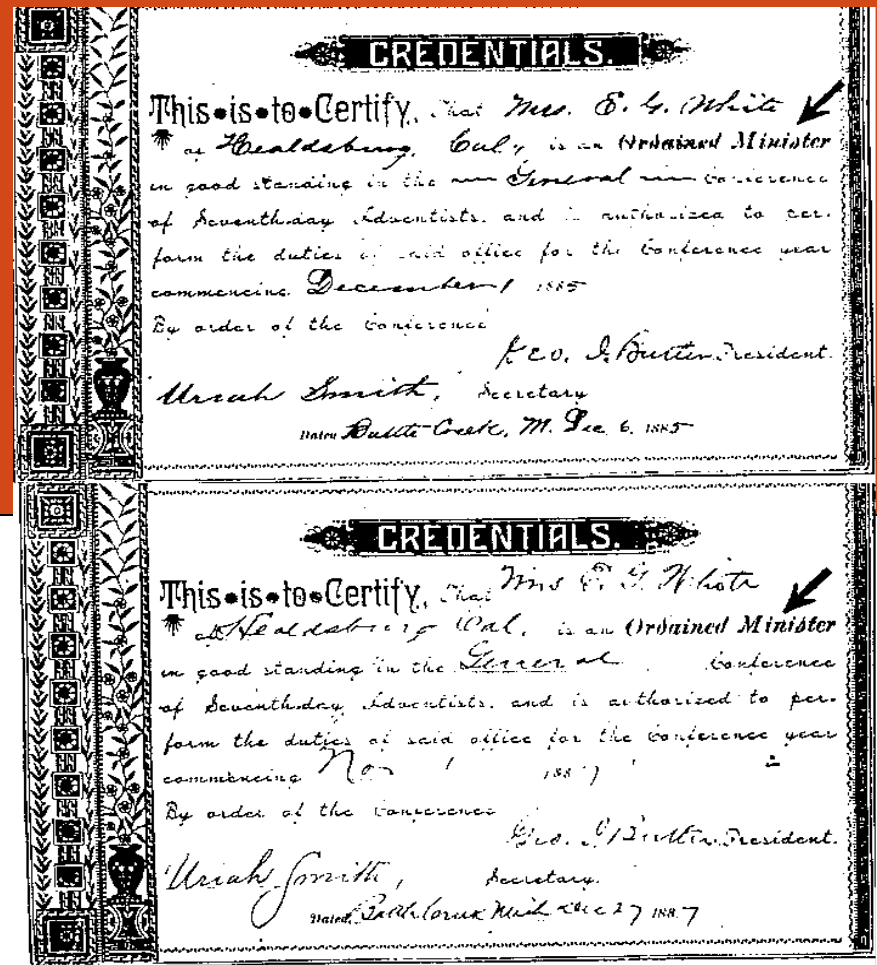 CREDENTIALS.
This•is•to•Certify, That Mrs. E. G. White
of Healdsburg, Cal, is an Ordained Minister
in good standing in the General Conference
of Seventh-day Adventists, and is authorized to per-
form the duties of said office for the Conference year
commencing December 1 1885
By order of the Conference
Geo. I. Butler President.
Uriah Smith, Secretary
Dated Battle Creek, M. Dec 6, 1885
CREDENTIALS.
This•is•to•Certify, That Mrs E. G. White
of Healdsburg Cal, is an Ordained Minister
in good standing in the General Conference
of Seventh-day Adventists, and is authorized to per-
form the duties of said office for the Conference year
commencing 1887
By order of the Conference
Geo. I Butler, President.
Uriah Smith, Secretary.
Dated, Battle Creek Mich Dec 27 1887